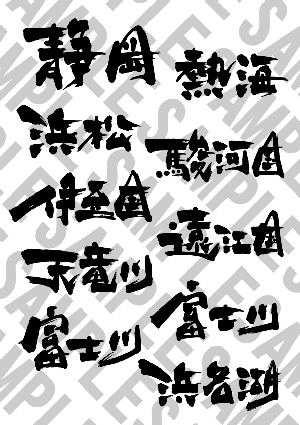 静岡
熱海
浜松
駿河国
伊豆国
遠江国
天竜川
富士川
富士川
浜名湖
SAMPLE